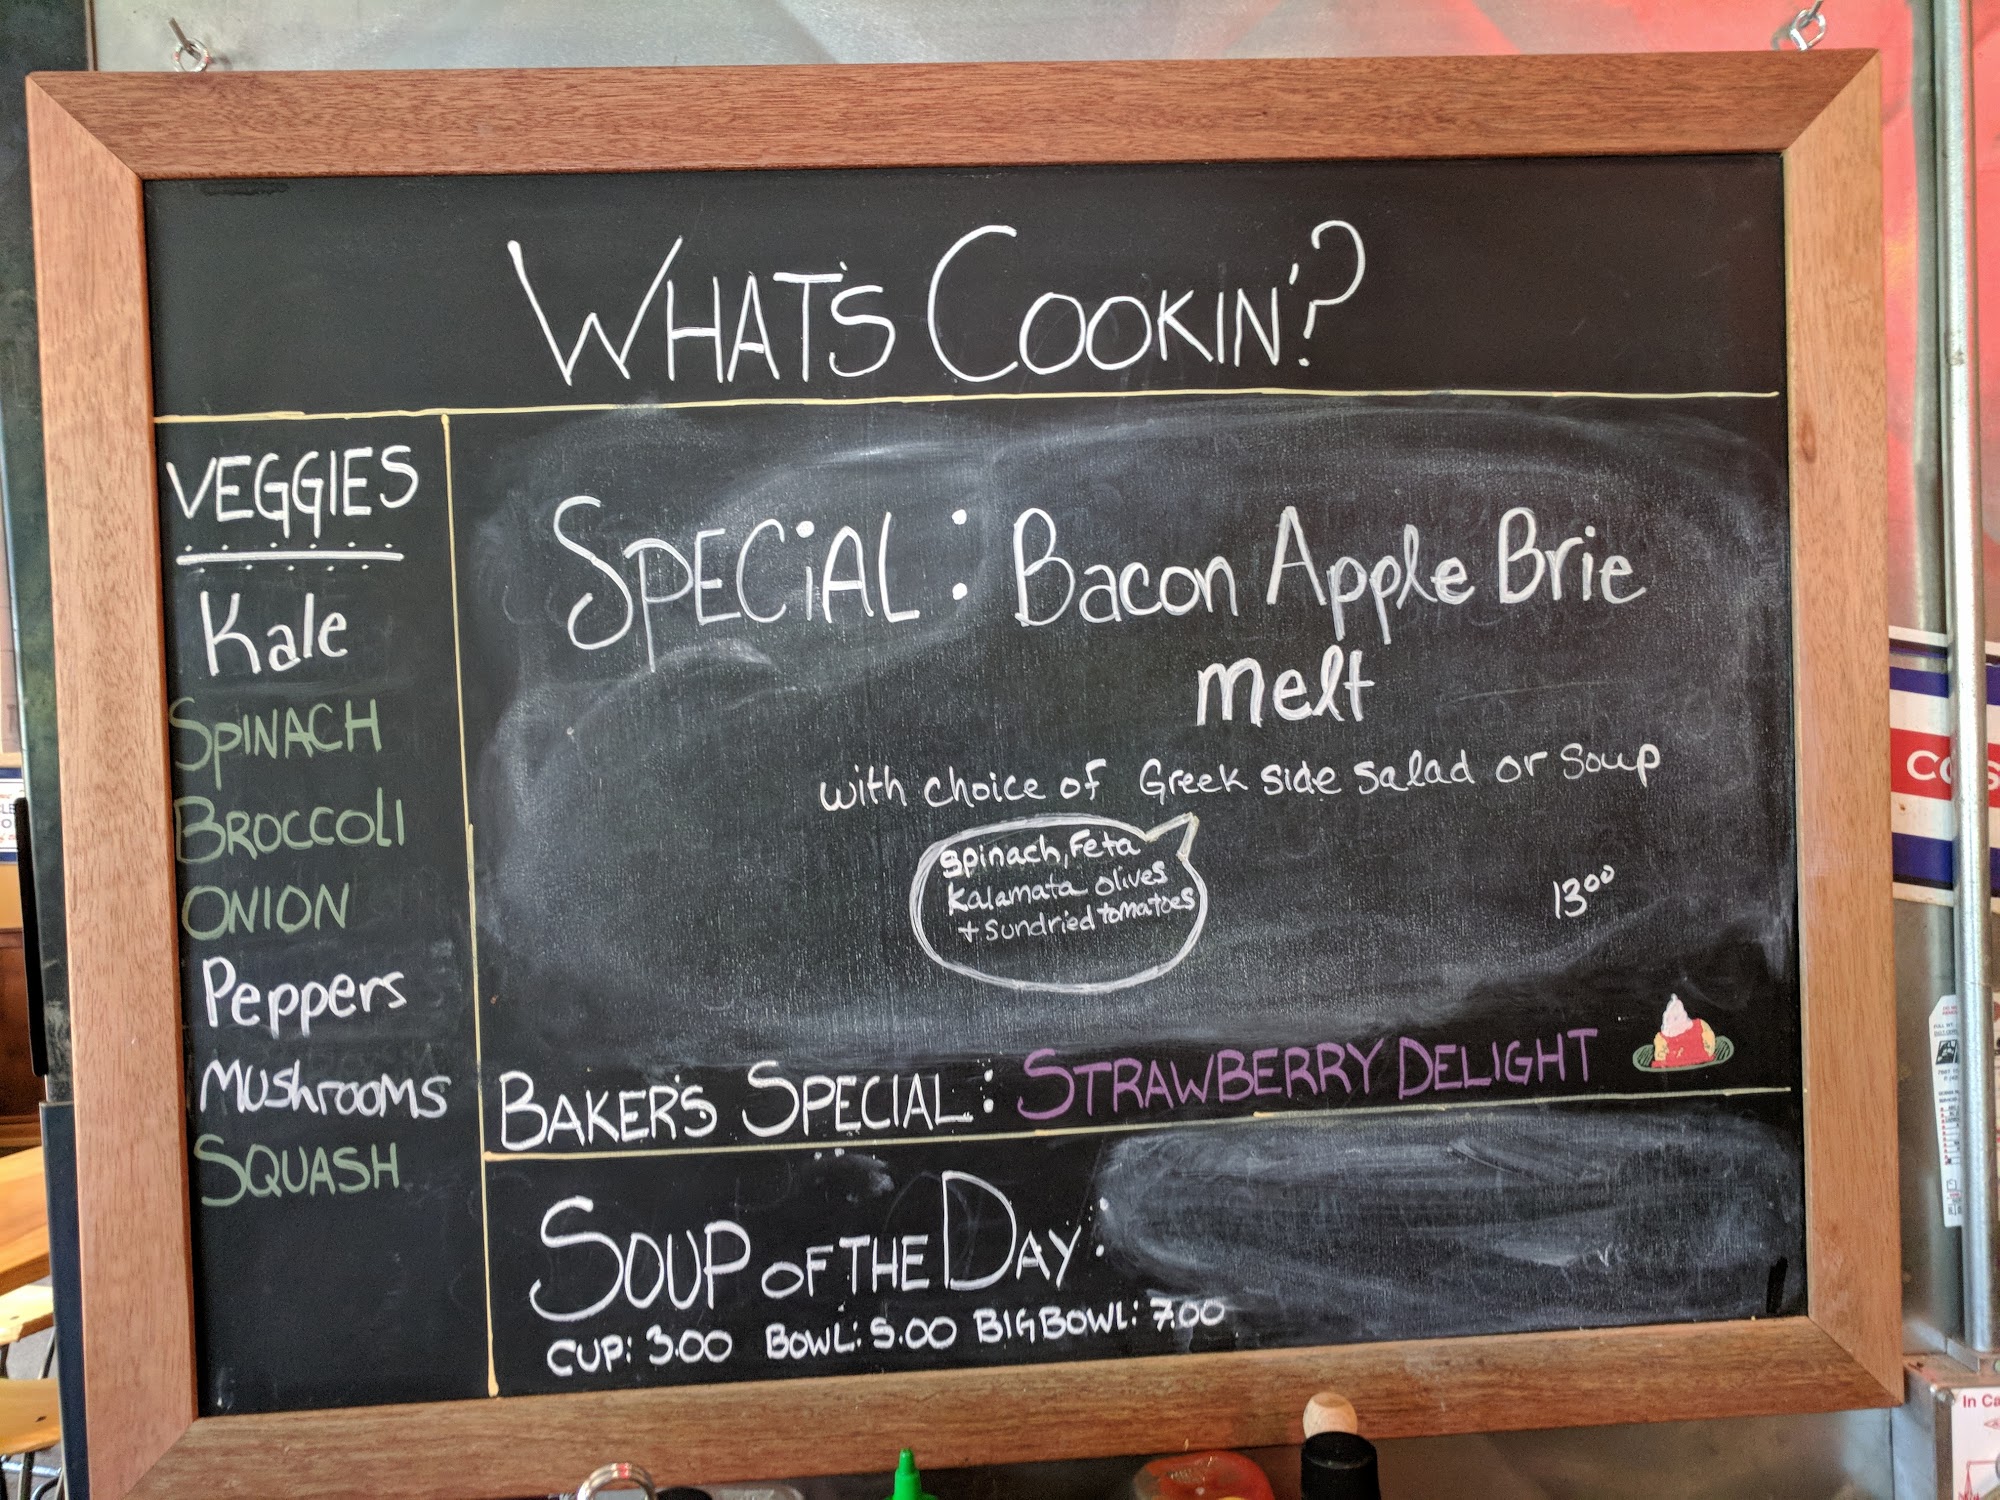 WHAT'S COOKIN'?
VEGGIES
Kale
SPINACH
BROCCOLI
ONION
Peppers
Mushrooms
SQUASH
SPECiAL: Bacon Apple Brie
melt
with choice of Greek side salad or soup
spinach, Feta
Kalamata olives
+ sundried tomatoes
13⁰⁰
BAKER'S SPECIAL: STRAWBERRY DELIGHT
SOUP OF THE DAY:
CUP: 3.00 BOWL: 5.00 BIG BOWL: 7.00
In Ca